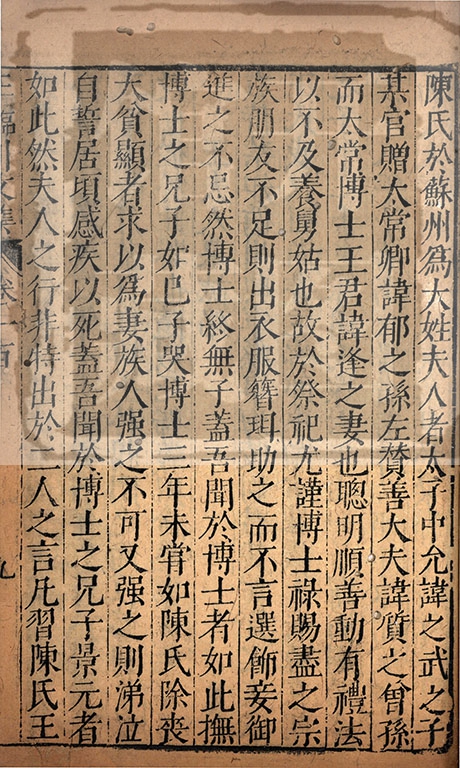 陳氏於蘇州為大姓夫人者太子中允諱之武之子
某官贈太常卿諱郁之孫左贊善大夫諱質之曾孫
而太常博士王君諱逢之妻也聰明順善動有禮法
以不及養舅姑也故於祭祀尤謹博士祿賜盡之宗
族朋友不足則出衣服簪珥助之而不言選飾妾御
進之不忌然博士終無子蓋吾聞於博士者如此撫
博士之兄子如已子哭博士三年未甞如陳氏除喪
大貧顯者求以為妻族人强之不可又强之則涕泣
自誓居頃感疾以死蓋吾聞於博士之兄子景元者
如此然夫人之行非特出於二人之言凡習陳氏王
王臨川文集 卷一百 九